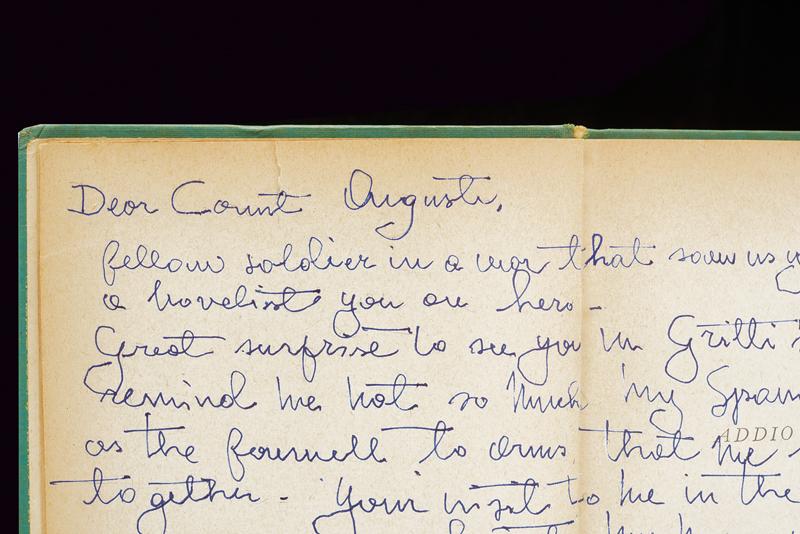 Dear Count Augusti,
fellow soldier in a war that saw us
a novelist you an hero -
Great surprise to see you in Gritti
remind me not so much my Span
as the farewell to arms that me
ADDIO
together - Your visit to me in the